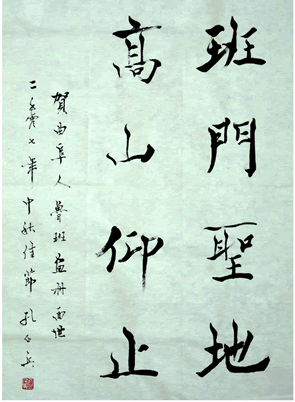 班門聖地
高山仰止
賀曲阜人魯班画册面世
二零零七年中秋佳節孔令兵